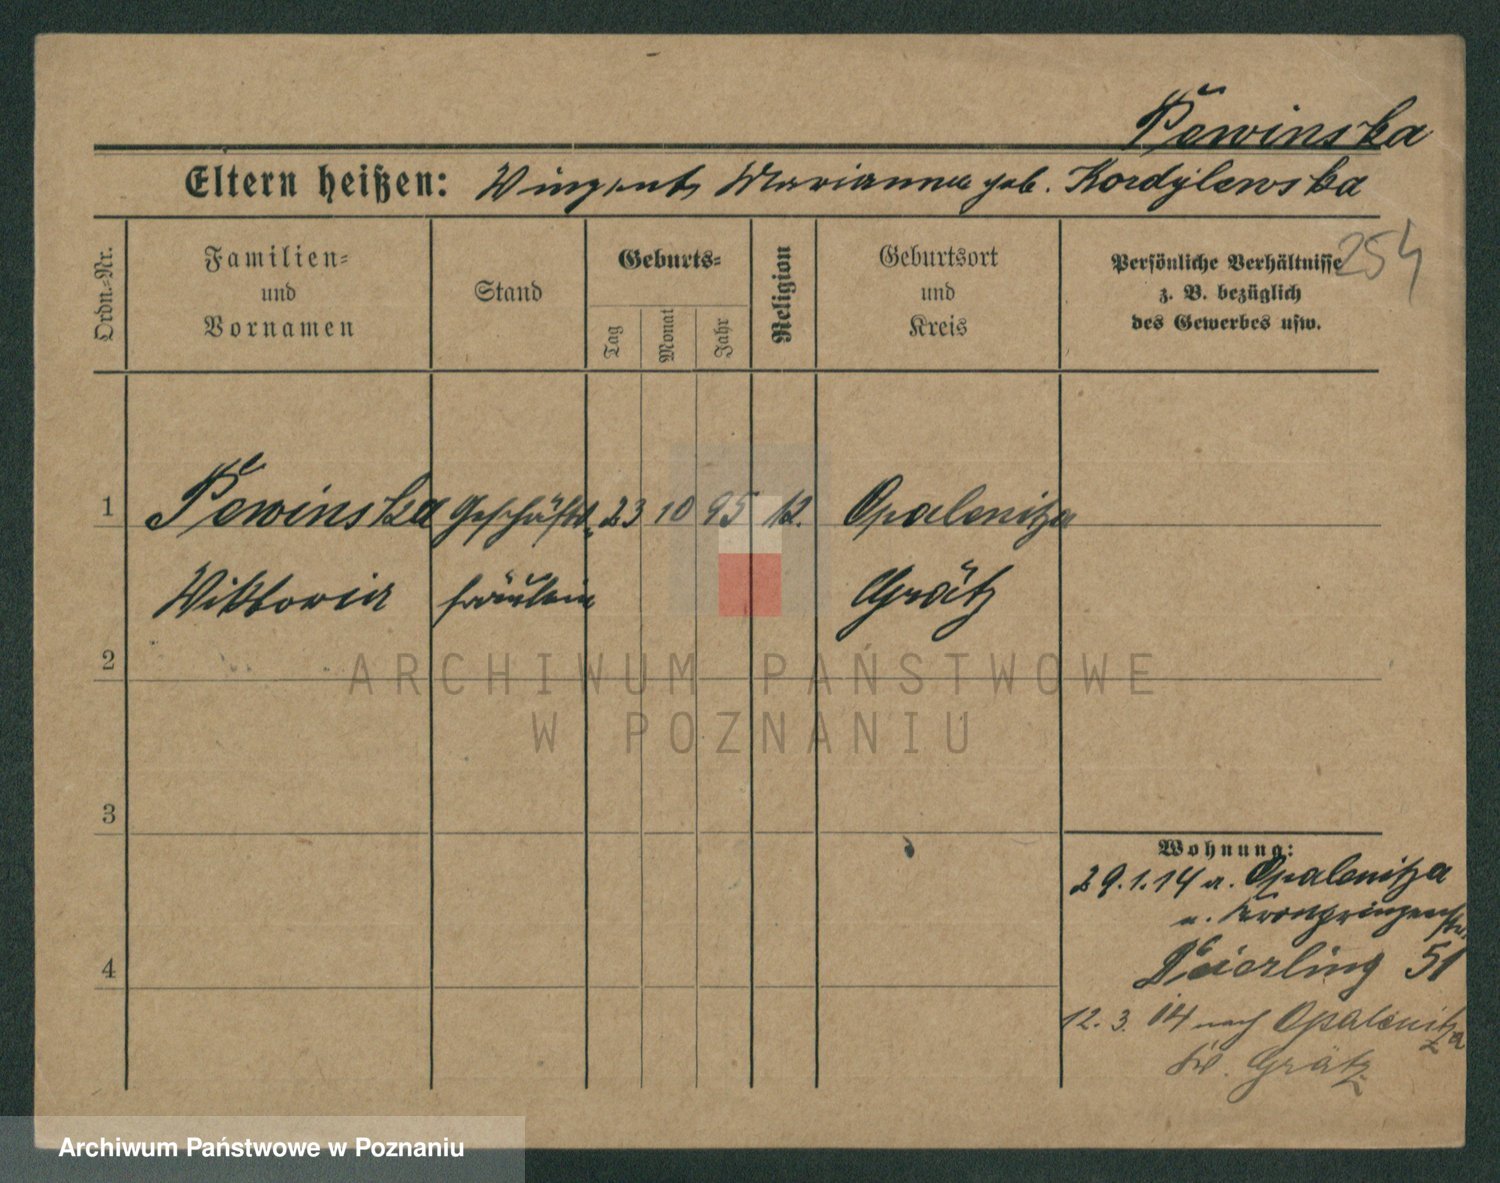 Pewinska
Eltern heißen: Vinzent, Marianna geb. Kordylewska
254
Ordn.-Nr.
Familien-
und
Vornamen
Stand
Geburts-
Tag
Monat
Jahr
Religion
Geburtsort
und
Kreis
Persönliche Verhältnisse
z. B. bezüglich
des Gewerbes usw.
1 Pewinska Geschäfts- 23 10 95 k. Opalenitza
Wiktoria fräulein Grätz
2
ARCHIWUM PAŃSTWOWE
W POZNANIU
3
4
Wohnung:
29.1.14 v. Opalenitza
n. Kronprinzenstr.
Beierling 51
12.3.14 nach Opalenitza
Kr. Grätz
Archiwum Państwowe w Poznaniu